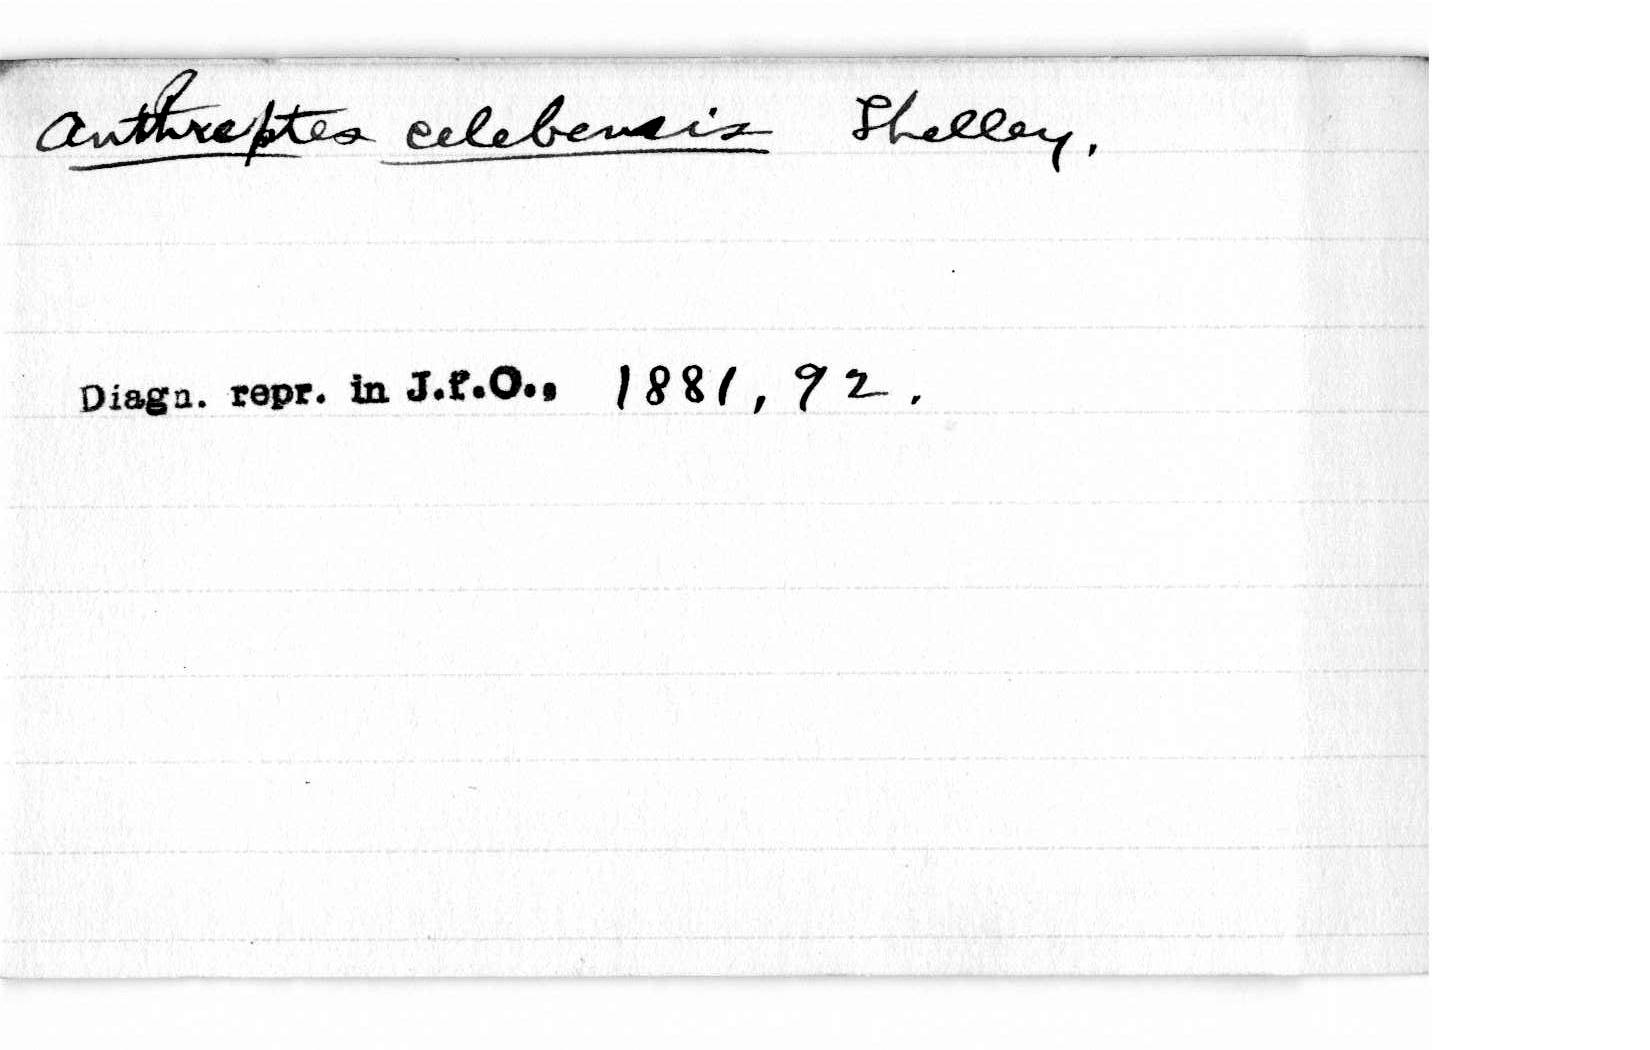 Anthreptes celebensis Shelley.
Diagn. repr. in J.f.O., 1881, 92.